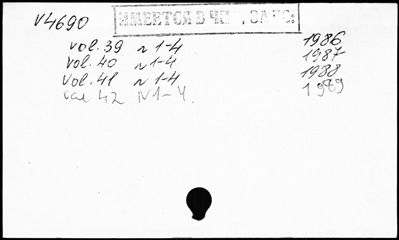 V4690
ИМЕЕТСЯ В ЧИ
vol. 39 N 1-4 1986
vol. 40 N 1-4 1987
vol. 41 N 1-4 1988
vol. 42 N 1-4. 1989